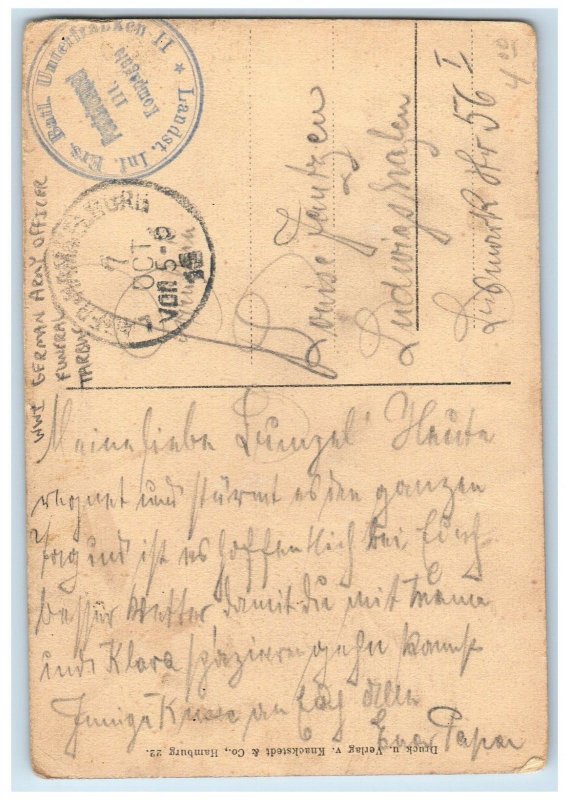 Landst. Inf. Ers. Batl. Unterfranken II ★
III.
Kompagnie
7
OCT
VON 5-6
WWI GERMAN ARMY OFFICER
FUNERAL
Louise Jantzen
Ludwigshafen
56 I
4 00
Meine liebe Luenzel! Heute
regnet und stürmt es den ganzen
Tag und ist es hoffentlich bei Euch
besser Wetter damit du mit Mama
und Klara spazieren gehn kannst
Innige Küsse an Euch alle
Euer Papa
Druck u. Verlag v. Knackstedt & Co., Hamburg 22.